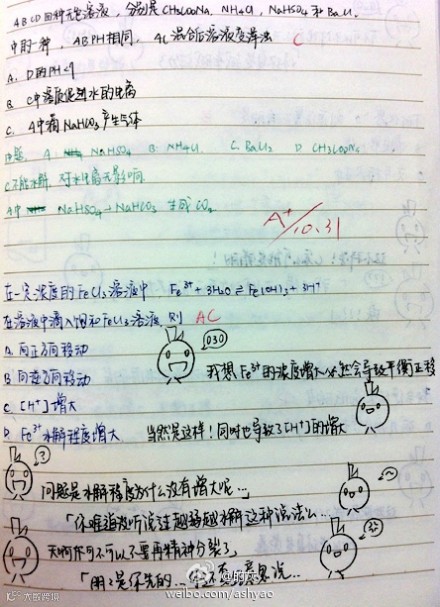 ABCD四种无色溶液，分别是CH3COONa、NH4Cl、NaHSO4和BaCl2
中的一种，AB PH相同，AC混合后溶液变浑浊 C
A. D的PH<7
B. C中溶质促进水的电离
C. A中滴NaHCO3产生气体
A NaHSO4 B NH4Cl C. BaCl2 D CH3COONa
C不能水解，对水电离无影响
A中 NaHSO4+NaHCO3 生成CO2
A+/10.31
在一定浓度的FeCl3溶液中 Fe3+ + 3H2O ⇌ Fe(OH)3 + 3H+
在溶液中滴入饱和FeCl3溶液，则 AC
A. 向正方向移动
B 向逆方向移动
C. [H+]增大
D. Fe3+水解程度增大
我想Fe3+的浓度增大必然会导致平衡正移
当然是这样！同时也导致了[H+]的增大
问题是水解程度为什么没有增大呢…
「你难道没听说过越稀越水解这种说法么…
天啊你可不可以不要再精神分裂了」
「明明是你先的…
weibo.com/ashyao